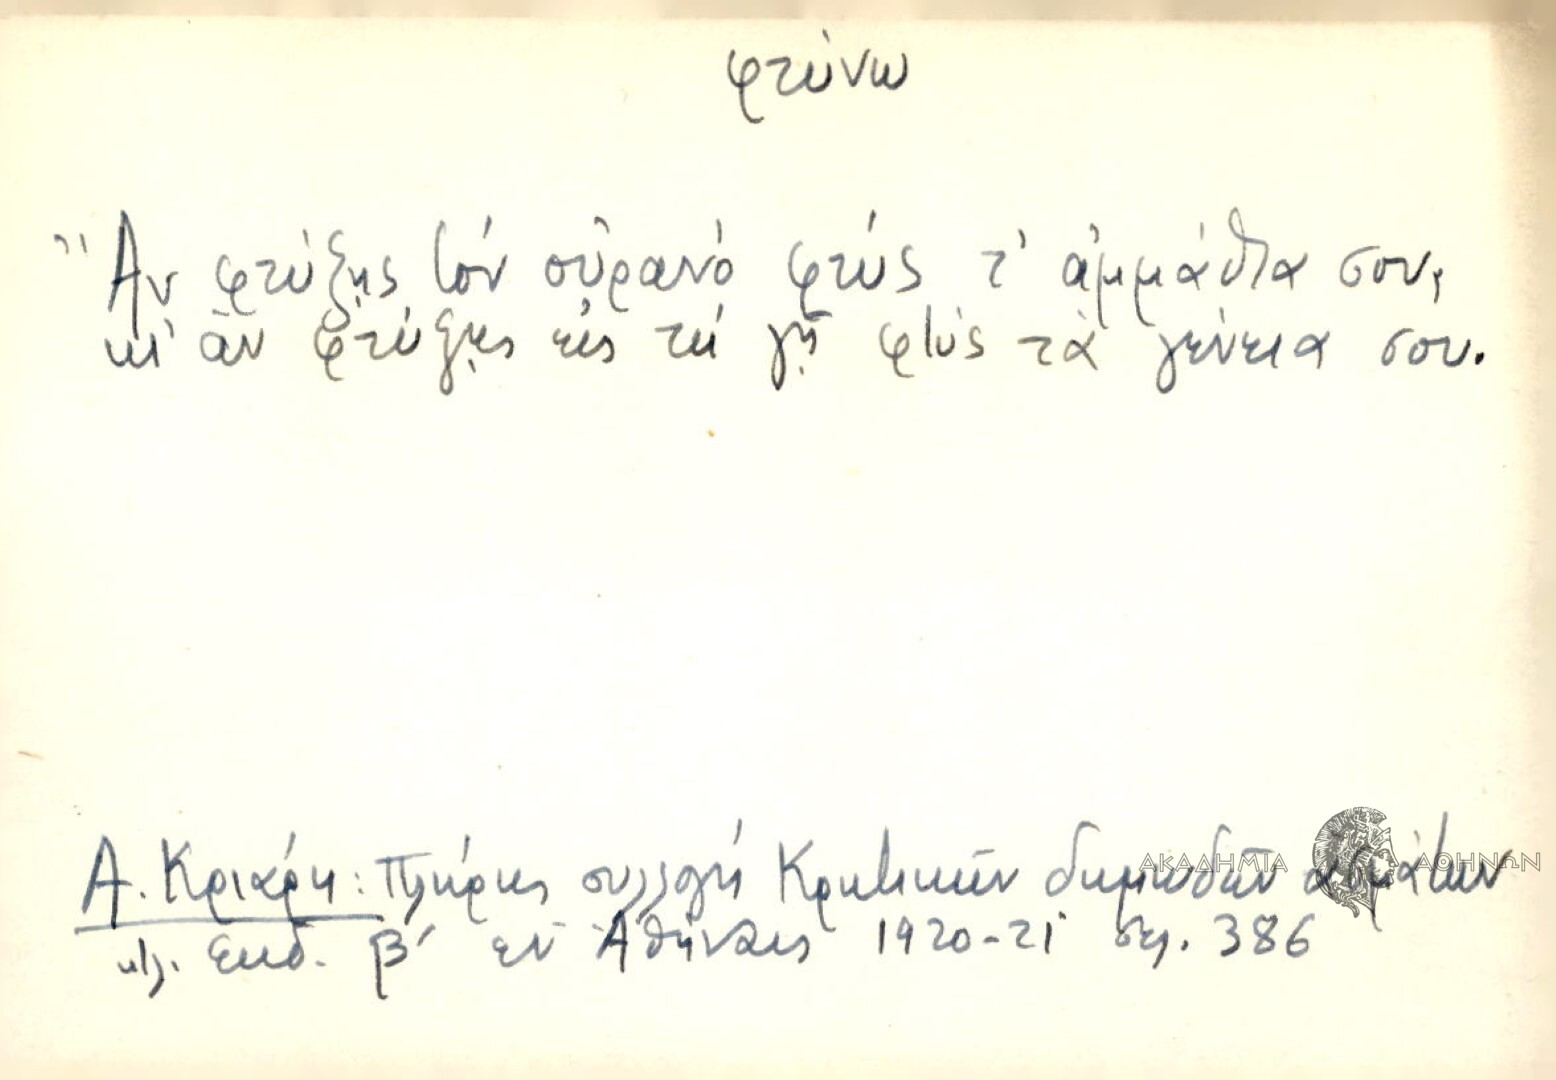 φτύνω
Ἄν φτύξῃς τόν οὐρανό φτύς τ' ἀμμάθια σου,
κι' ἄν φτύξῃς εἰς τή γῆ φτύς τὰ γένεια σου.
Α. Κριάρη: Πλήρης συλλογή Κρητικῶν δημωδῶν ᾀσμάτων
κλ. Ἔκδ. β' ἐν Ἀθήναις 1920-21 σελ. 386
ΑΚΑΔΗΜΙΑ ΑΘΗΝΩΝ